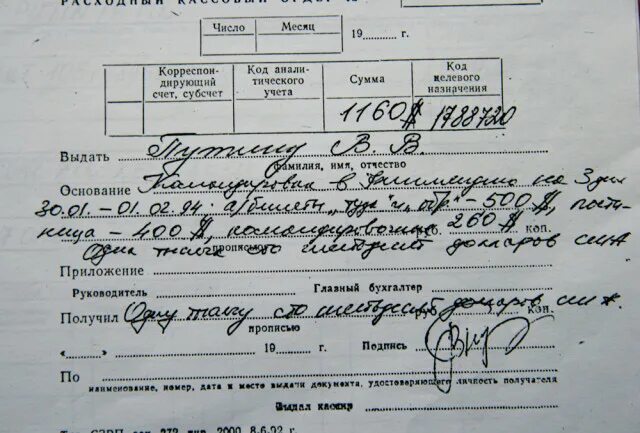 РАСХОДНЫЙ КАССОВЫЙ ОРДЕР №
Число Месяц 19 г.
Корреспон-дирующий счет, субсчет Код анали-тического учета Сумма Код целевого назначения
1160$ 1788720
Выдать Путину В. В.
фамилия, имя, отчество
Основание Командировка в Финляндию на 3 дня
30.01. – 01.02.94: а/билеты „туда" и – 500$, гости-
ница – 400$, командировочные 260$ коп.
прописью
Одна тысяча сто шестьдесят долларов США
Приложение
Руководитель Главный бухгалтер
Получил Одну тысячу сто шестьдесят долларов США. коп.
прописью
„ " 19 г. Подпись
По
наименование, номер, дата и место выдачи документа, удостоверяющего личность получателя
Выдал кассир
2000 8.6.92 г.